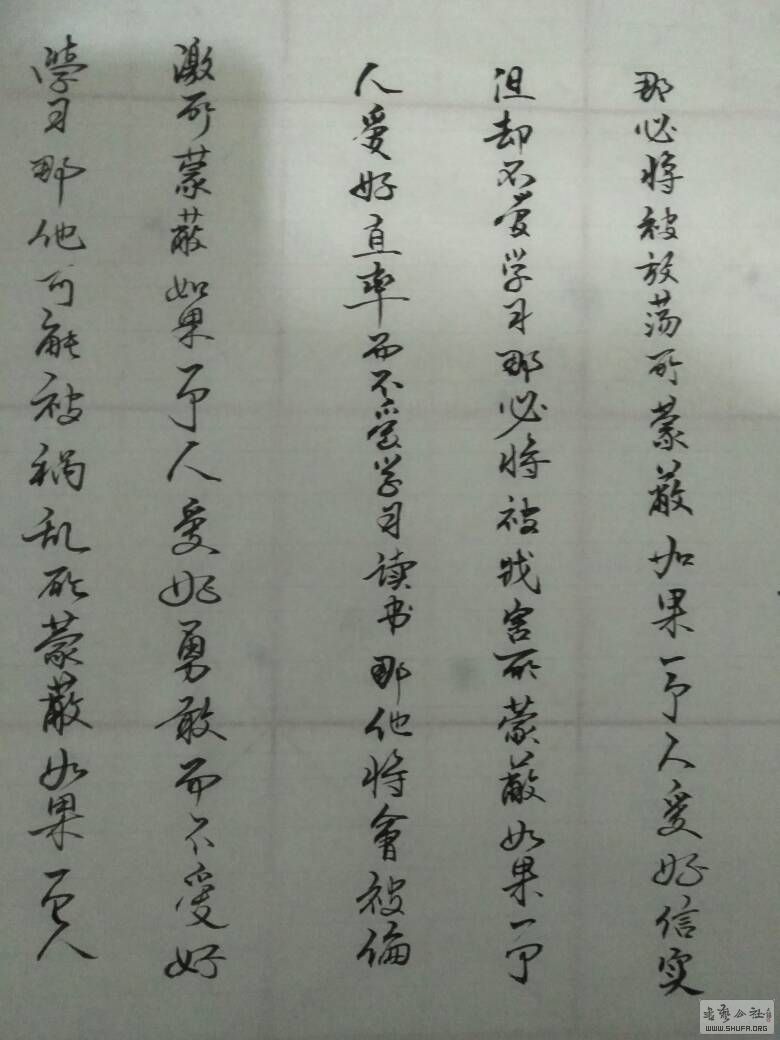 那必将被放荡所蒙蔽如果一个人爱好信实
但却不爱学习那必将被戕害所蒙蔽如果一个
人爱好直率而不爱学习读书那他将會被偏
激所蒙蔽如果一个人爱好勇敢而不爱好
學习那他可能被祸乱所蒙蔽如果一个人
書藝公社
WWW.SHUFA.ORG